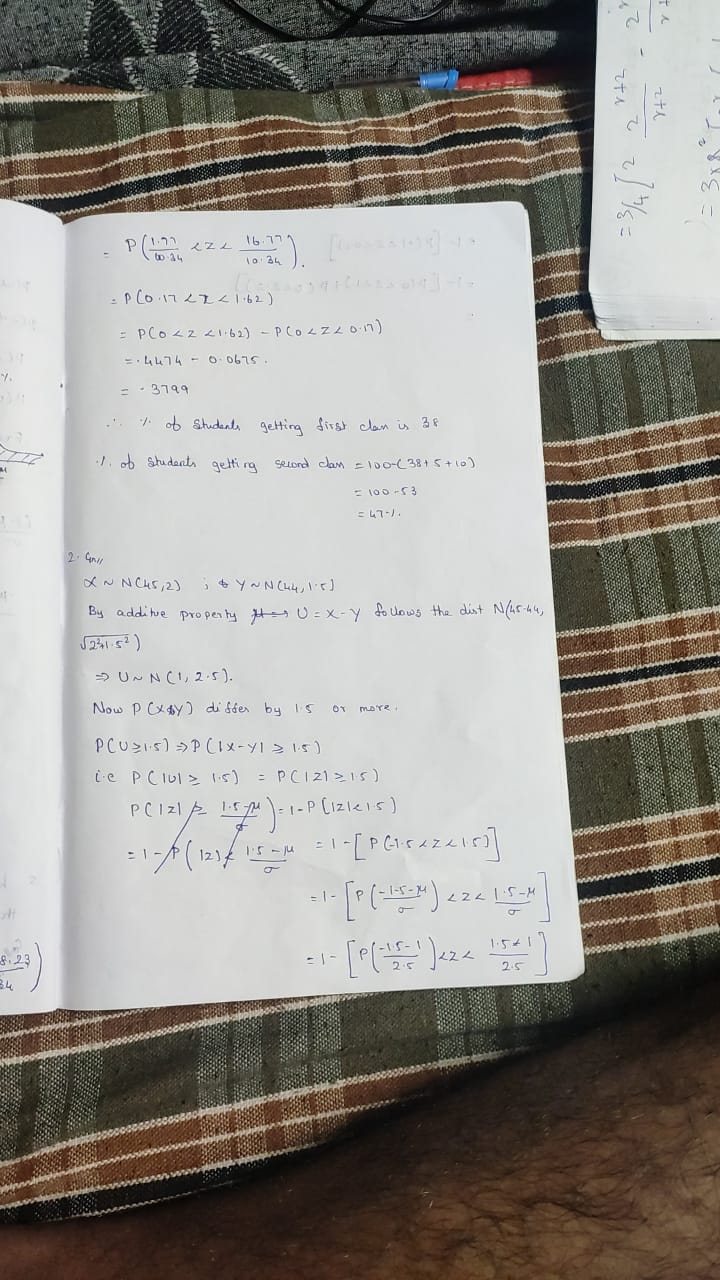 = P(1.77/10.34 < z < 16.77/10.34).
= P(0.17 < z < 1.62)
= P(0 < z < 1.62) - P(0 < z < 0.17)
= .4474 - 0.0675.
= .3799
∴ % of Students getting first clan is 38
% of Students getting second clan = 100-(38+5+10)
= 100-53
= 47%.
2. Gn//
X ~ N(45,2) ; Y ~ N(44,1.5)
By additive property U = X-Y follows the dist N(45-44,
√2²+1.5²)
⇒ U ~ N(1, 2.5).
Now P(X&Y) differ by 1.5 or more.
P(U≥1.5) ⇒ P(|X-Y| ≥ 1.5)
i.e P(|U| ≥ 1.5) = P(|Z| ≥ 1.5)
P(|Z| ≥ 1.5-μ/σ) = 1-P(|Z|<1.5)
= 1-P(|Z| < 1.5-μ/σ = 1-[P(-1.5<Z<1.5)]
= 1-[P(-1.5-μ/σ) < z < 1.5-μ/σ]
= 1-[P(-1.5-1/2.5) < z < 1.5-1/2.5]
8.23
34
)
= 3/4 [2 2^r+2/r+2 -
= 3×8